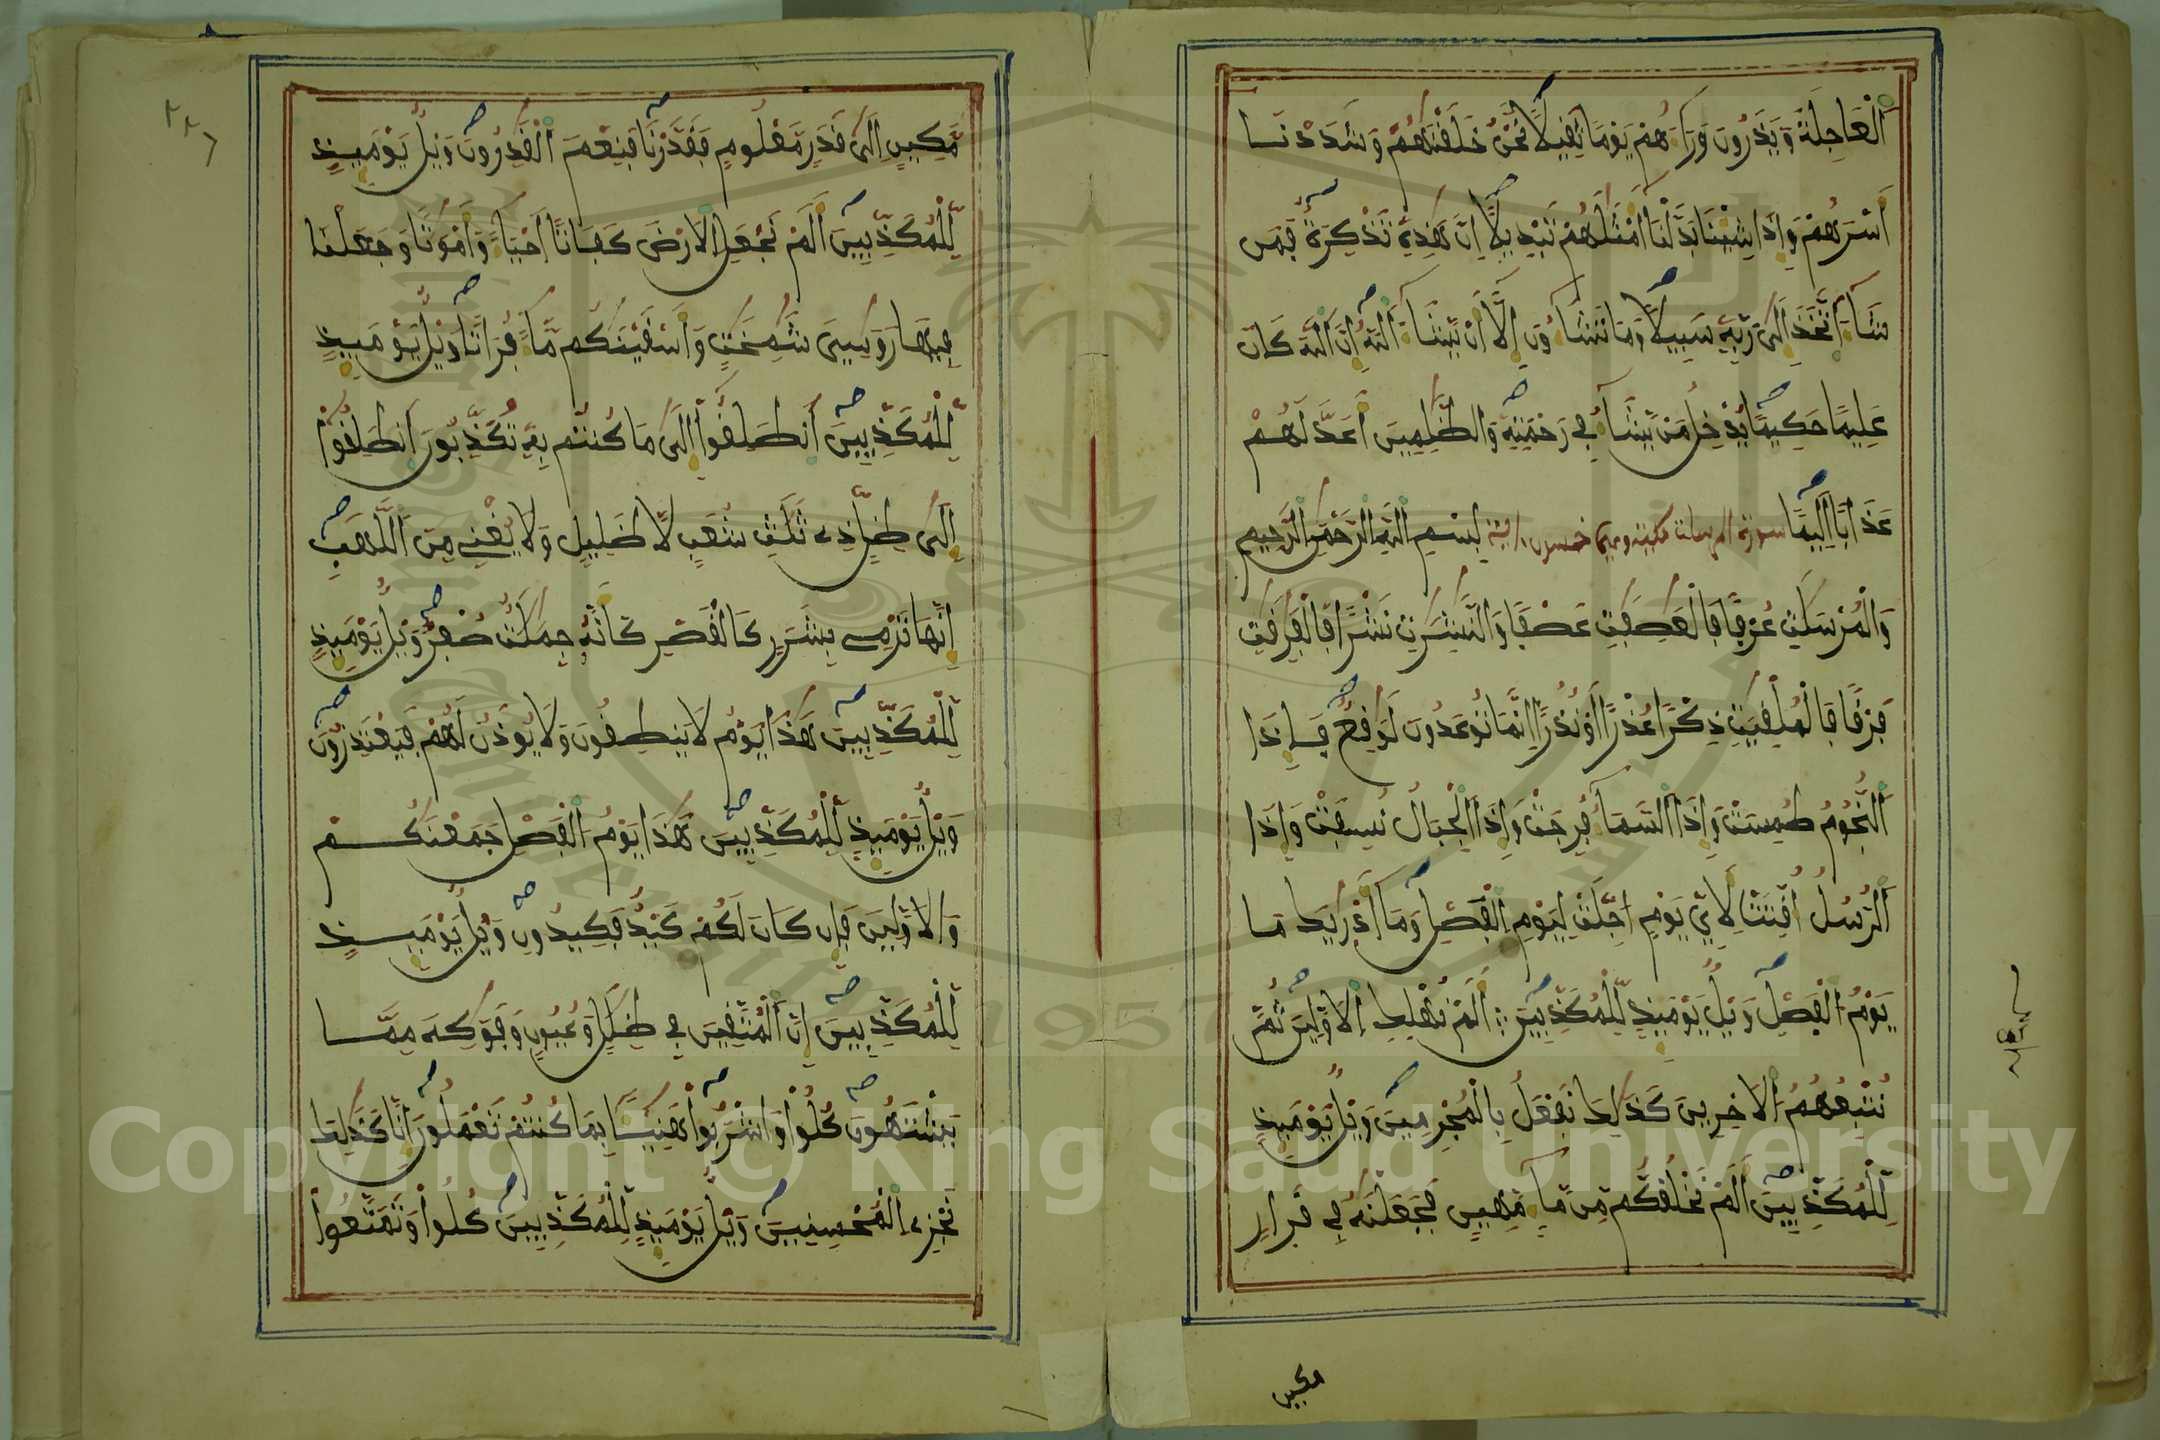 اَ۬لْعَاجِلَةَ وَيَذَرُونَ وَرَآءَهُمْ يَوْماً ثَقِيلاً نَّحْنُ خَلَقْنَٰهُمْ وَشَدَدْنَا
أَسْرَهُمْ وَإِذَا شِئْنَا بَدَّلْنَا أَمْثَٰلَهُمْ تَبْدِيلاً إِنَّ هَٰذِهِۦ تَذْكِرَةٌ فَمَن
شَآءَ اَ۪تَّخَذَ إِلَىٰ رَبِّهِۦ سَبِيلاً وَمَا تَشَآءُونَ إِلَّا أَنْ يَّشَآءَ اَ۬للَّهُ إِنَّ اَ۬للَّهَ كَانَ
عَلِيماً حَكِيماً يُدْخِلُ مَنْ يَّشَآءُ فِي رَحْمَتِهِۦ وَالظَّٰلِمِينَ أَعَدَّ لَهُمْ
عَذَاباً أَلِيماً سورة المرسلات مكية وهي خمسون اية بسم الله الرحمن الرحيم
وَالْمُرْسَلَٰتِ عُرْفاً فَالْعَٰصِفَٰتِ عَصْفاً وَالنَّٰشِرَٰتِ نَشْراً فَالْفَٰرِقَٰتِ
فَرْقاً فَالْمُلْقِيَٰتِ ذِكْراً عُذْراً أَوْ نُذُراً إِنَّمَا تُوعَدُونَ لَوَٰقِعٌ فَإِذَا
اَ۬لنُّجُومُ طُمِسَتْ وَإِذَا اَ۬لسَّمَآءُ فُرِجَتْ وَإِذَا اَ۬لْجِبَالُ نُسِفَتْ وَإِذَا
اَ۬لرُّسُلُ أُقِّتَتْ لِأَيِّ يَوْمٍ أُجِّلَتْ لِيَوْمِ اِ۬لْفَصْلِ وَمَا أَدْرَيٰكَ مَا
يَوْمُ اُ۬لْفَصْلِ وَيْلٌ يَوْمَئِذٍ لِّلْمُكَذِّبِينَ أَلَمْ نُهْلِكِ اِ۬لَاوَّلِينَ ثُمَّ
نُتْبِعُهُمُ اُ۬لَاخِرِينَ كَذَٰلِكَ نَفْعَلُ بِالْمُجْرِمِينَ وَيْلٌ يَوْمَئِذٍ
لِّلْمُكَذِّبِينَ أَلَمْ نَخْلُقكُّم مِّن مَّآءٍ مَّهِينٍ فَجَعَلْنَٰهُ فِي قَرَارٍ
مكين
مَّكِينٍ إِلَىٰ قَدَرٍ مَّعْلُومٍ فَقَدَّرْنَا فَنِعْمَ اَ۬لْقَٰدِرُونَ وَيْلٌ يَوْمَئِذٍ
لِّلْمُكَذِّبِينَ أَلَمْ نَجْعَلِ اِ۬لَارْضَ كِفَاتاً أَحْيَآءً وَأَمْوَٰتاً وَجَعَلْنَا
فِيهَا رَوَٰسِيَ شَٰمِخَٰتٍ وَأَسْقَيْنَٰكُم مَّآءً فُرَاتاً وَيْلٌ يَوْمَئِذٍ
لِّلْمُكَذِّبِينَ اَ۪نطَلِقُوا إِلَىٰ مَا كُنتُم بِهِۦ تُكَذِّبُونَ اَ۪نطَلِقُوا
إِلَىٰ ظِلٍّ ذِي ثَلَٰثِ شُعَبٍ لَّا ظَلِيلٍ وَلَا يُغْنِي مِنَ اَ۬للَّهَبِ
إِنَّهَا تَرْمِي بِشَرَرٍ كَالْقَصْرِ كَأَنَّهُۥ جِمَٰلَٰتٌ صُفْرٌ وَيْلٌ يَوْمَئِذٍ
لِّلْمُكَذِّبِينَ هَٰذَا يَوْمُ لَا يَنطِقُونَ وَلَا يُوذَنُ لَهُمْ فَيَعْتَذِرُونَ
وَيْلٌ يَوْمَئِذٍ لِّلْمُكَذِّبِينَ هَٰذَا يَوْمُ اُ۬لْفَصْلِ جَمَعْنَٰكُمْ
وَالَاوَّلِينَ فَإِن كَانَ لَكُمْ كَيْدٌ فَكِيدُونِ وَيْلٌ يَوْمَئِذٍ
لِّلْمُكَذِّبِينَ إِنَّ اَ۬لْمُتَّقِينَ فِي ظِلَٰلٍ وَعُيُونٍ وَفَوَٰكِهَ مِمَّا
يَشْتَهُونَ كُلُوا وَاشْرَبُوا هَنِيئاً بِمَا كُنتُمْ تَعْمَلُونَ إِنَّا كَذَٰلِكَ
نَجْزِي اِ۬لْمُحْسِنِينَ وَيْلٌ يَوْمَئِذٍ لِّلْمُكَذِّبِينَ كُلُوا وَتَمَتَّعُوا
Copyright © King Saud University
1957